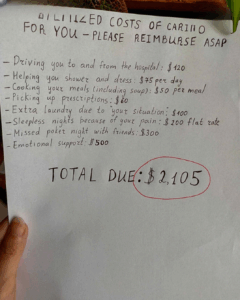 COSTS OF CARING
FOR YOU – PLEASE REIMBURSE ASAP
– Driving you to and from the hospital: $120
– Helping you shower and dress: $75 per day
– Cooking your meals (including soup): $50 per meal
– Picking up prescriptions:
– Extra laundry due to your situation: $100
– Sleepless nights because of your pain: $200 flat rate
– Missed poker night with friends: $300
– Emotional support: $500
TOTAL DUE: $2,105